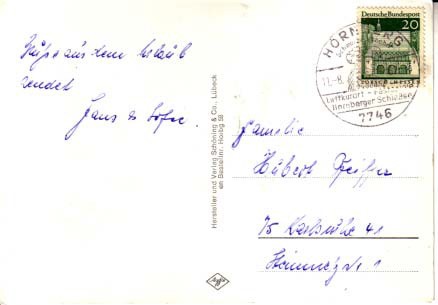 Grüße aus dem Urlaub
sendet
Hans & Sofie.
Hersteller und Verlag Schöning & Co., Lübeck
Bestellnr. Honbg 58
Deutsche Bundespost
20
HORNBERG
11.-8.
Luftkurort
Hornberger Schießen
7746
Familie
Hubert Pfeiffer
75 Karlsruhe 41
1
Agfa